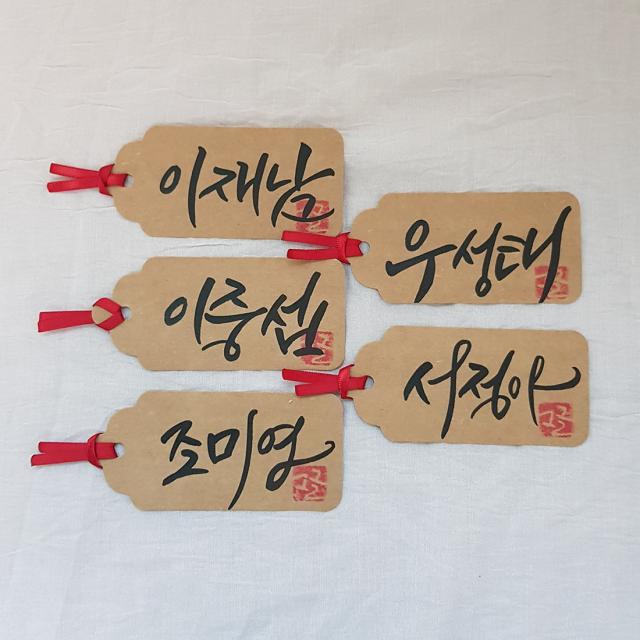 이재남
이중섭
조미영
우성태
서정아